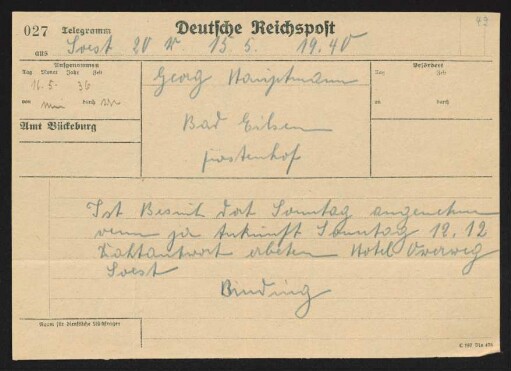 43
027 Telegramm Deutsche Reichspost
aus Soest 20 W. 15.5. 19.40
Aufgenommen
Tag Monat Jahr Zeit
16. 5. 36
von durch
Amt Bückeburg
Befördert
Tag Zeit
an durch
Georg Hauptmann
Bad Eilsen
Fürstenhof
Ist Besuch dort Sonntag angenehm
wenn ja Ankunft Sonntag 18.12
Drahtantwort erbeten Hotel Overweg
Soest
Binding
Raum für dienstliche Rückfragen
C 187 Din 476